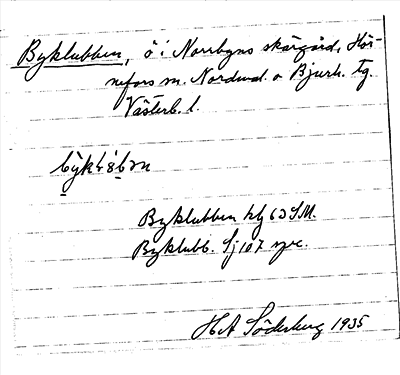 Byklubben, ö i Norrbyns skärgård, Hör-
nefors sn. Nordmal. o Bjurh. tg.
Västerb. l.
Byklubben hlg 63 SM.
Byklubb. Sj 107 spec.
H A Söderberg 1935